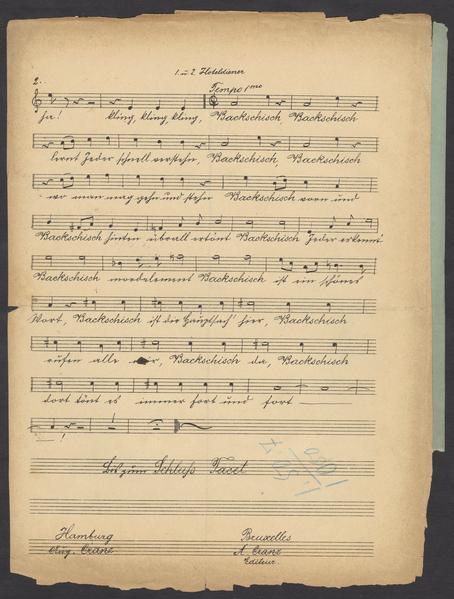 1. u. 2. Hoteldiener
2.
Tempo 1mo
ja! kling, kling, kling, Backschisch, Backschisch
lernt Jeder schnell verstehn, Backschisch, Backschisch
wo man mag gehn und stehn Backschisch vorn und
Backschisch hinten überall ertönt Backschisch Jeder erkennt
Backschisch Backschisch ist ein schönes
Wort, Backschisch ist die Hauptsach' hier, Backschisch
rufen alle Backschisch da, Backschisch
dort tönt es immer fort und fort
!
Bis zum Schluß Tacet
Hamburg Bruxelles
Aug. Cranz A. Cranz
Editeur.